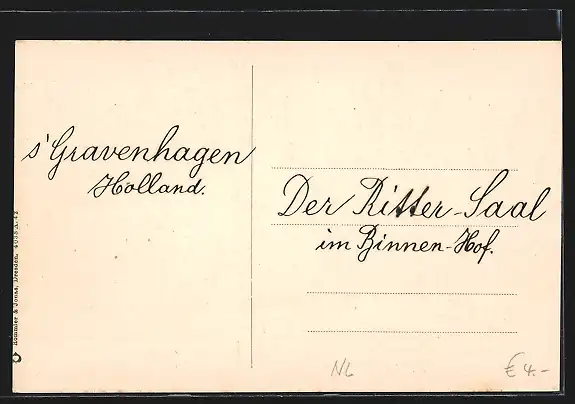 s'Gravenhagen
Holland.
Der Ritter-Saal
im Binnen-Hof.
Rommler & Jonas, Dresden.
NL
€ 4.-